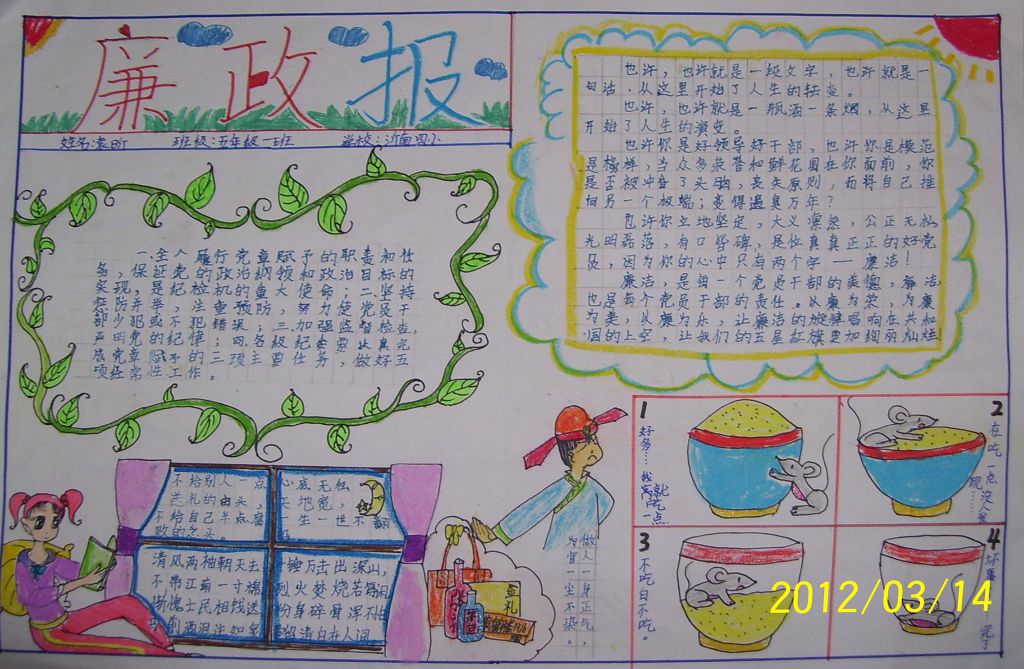 廉政报
姓名:袁昕 班级:五年级一班 学校:沂南四小
一.全人履行党章赋予的职责和任
务,保证党的政治纲领和政治目标的
实现,是纪检机的重大使命;二坚持
惩防并举,注重预防,努力使党员干
部少犯或不犯错误;三加强监督检查,
严明党的纪律;四.各级纪委要认真完
成党章赋予的三项主要任务,做好五
项经常性工作。
也许,也许就是一段文字,也许就是一
句话,从这里开始了人生的转变。
也许,也许就是一瓶酒一条烟,从这里
开始了人生的演变。
也许你是好领导好干部,也许你是模范
是榜样,当众多荣誉和鲜花围在你面前,你
是否被冲昏了头脑,丧失原则,而将自己推
向另一个极端;变得遗臭万年?
也许你立地坚定,大义凛然,公正无私
光明磊落,有口皆碑,是位真真正正的好党
员,因为你的心中只有两个字——廉洁!
廉洁,是每一个党员干部的美德,廉洁,
也是每个党员干部的责任。以廉为荣,为廉
为美,以廉为乐,让廉洁的旋律唱响在共和
国的上空,让我们的五星红旗更加绚丽灿烂!
不给别人一点
送礼的由头,
不给自己半点腐
败的念头。
心底无私
天地宽,
一生一世不翻
清风两袖朝天去
不带江南一寸棉
惭愧士民相饯送
锤万击出深山,
烈火焚烧若等闲
粉身碎骨浑不怕
留清白在人间
做人一身正气,
为官一尘不染。
1
好多…我就
离吃点
2
在吃一点没人发
现……
3
不吃白不吃。
4
坏事…完了
2012/03/14